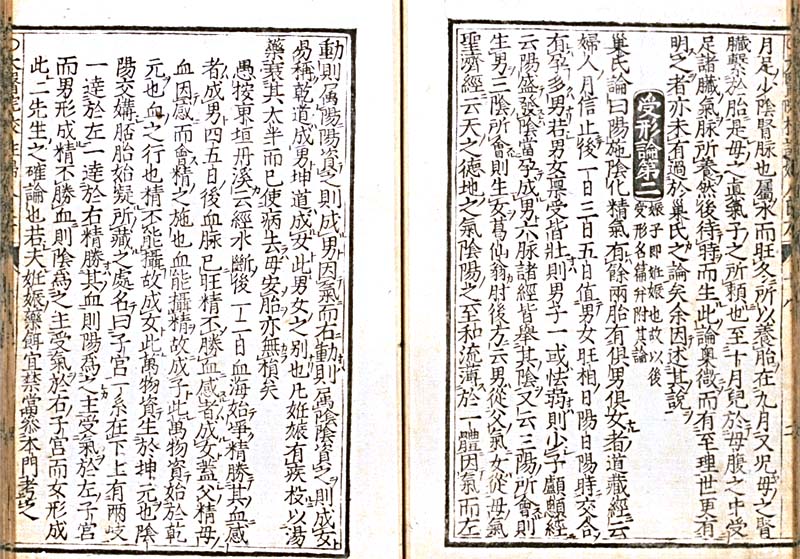 月足少陰腎脉也屬水而旺冬所以養胎在九月又兒母之腎
臟繫於胎是母之眞氣子之所頼也至十月兒於母腹之中受
足諸臟氣脉所養然後待時而生此論奧微而有至理世更有
明之者亦未有過於巢氏之論矣余因述其說
受形論第二
娠子即姙娠也故以後
受形名篇并附其論
巢氏論曰陽施陰化精氣有餘兩胎有俱男俱女者道藏經云
婦人月信止後一日三日五日值男女旺相日陽日陽時交合
有孕多男若男女禀受皆壯則男子一或怯弱則少子顱顖經
云陽盛發陰當孕成男六脉諸經皆舉其陰又云三陽所會則
生男三陰所會則生女葛仙翁肘後方云男從父氣女從母氣
聖濟經云天之德地之氣陰陽之至和流薄於一體因氣而左
動則属陽陽資之則成男因氣而右動則属陰陰資之則成女
易稱乾道成男坤道成女此男女之別也凢姙娠有疾投以湯
藥衰其太半而已使病去母安胎亦無殞矣
愚按東垣丹溪云經水斷後一二日血海始淨精勝其血感
者成男四五日後血脉已旺精不勝血感者成女蓋父精母
血因感而會精之施也血能攝精故成子此萬物資始於乾
元也血之行也精不能攝故成女此萬物資生於坤元也陰
陽交媾胚胎始凝所藏之處名曰子宮一系在下上有兩岐
一達於左一達於右精勝其血則陽爲之主受氣於左子宮
而男形成精不勝血則陰爲之主受氣於右子宮而女形成
此二先生之確論也若夫姙娠藥餌宜禁當參本門考之